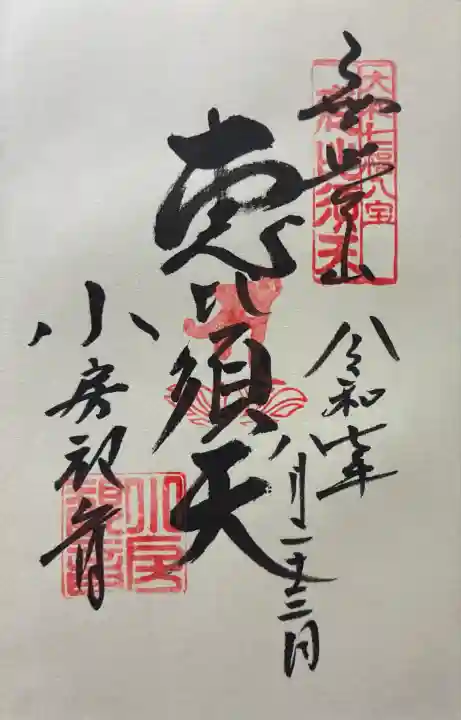 無量山
大和七福八宝
恵比須天
令和七年
八月二十三日
小房観音
小房
観音